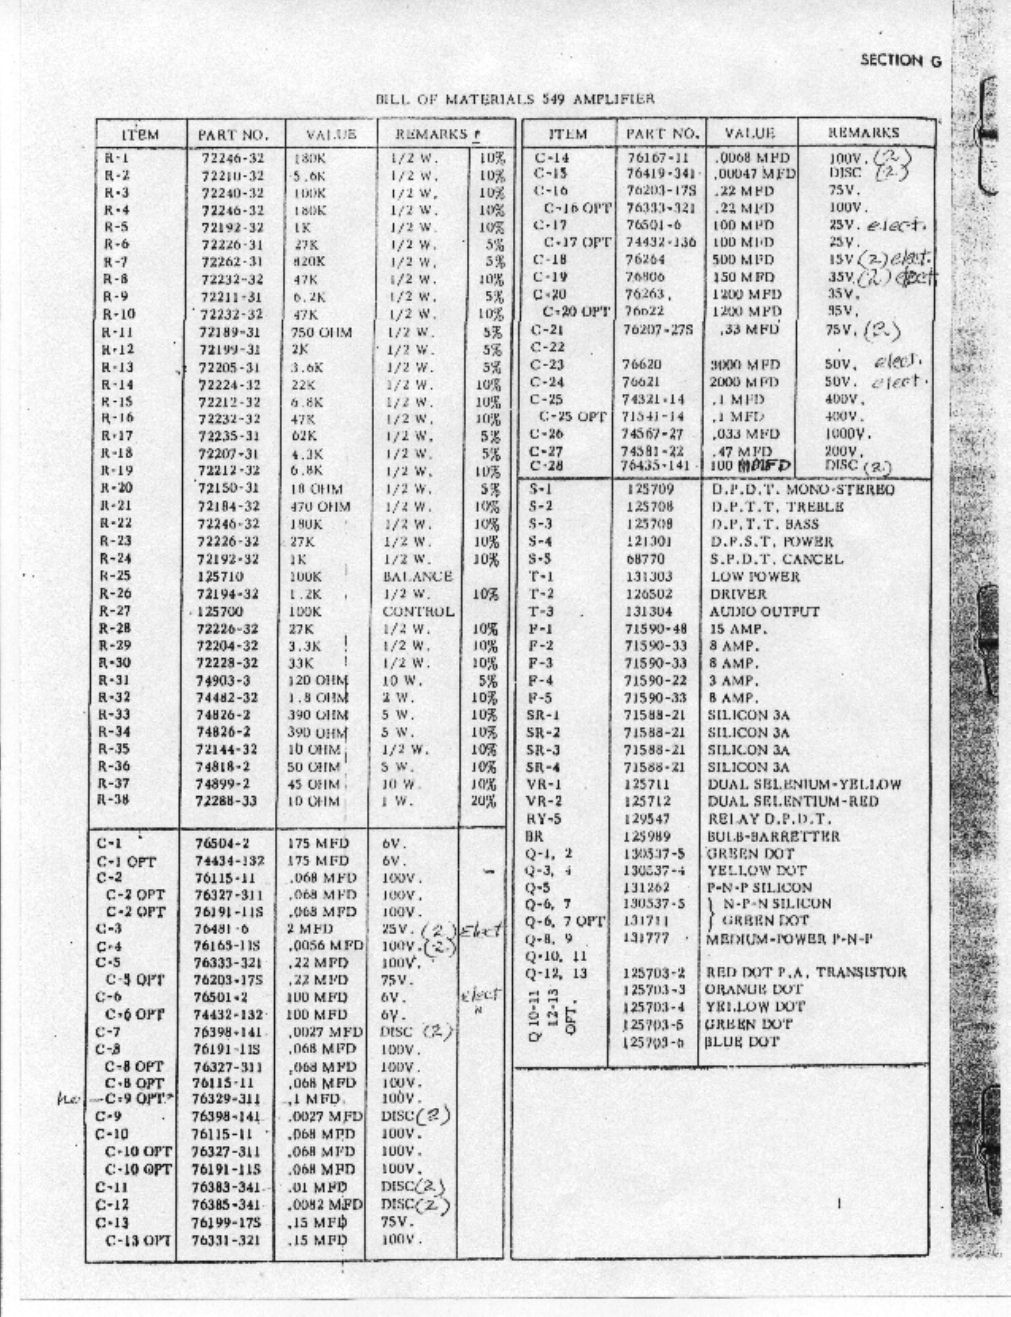 SECTION G
BILL OF MATERIALS 549 AMPLIFIER
ITEM PART NO. VALUE REMARKS
R-1 72246-32 180K 1/2 W. 10%
R-2 72210-32 5.6K 1/2 W. 10%
R-3 72240-32 100K 1/2 W. 10%
R-4 72246-32 180K 1/2 W. 10%
R-5 72192-32 1K 1/2 W. 10%
R-6 72226-31 27K 1/2 W. 5%
R-7 72262-31 820K 1/2 W. 5%
R-8 72232-32 47K 1/2 W. 10%
R-9 72211-31 6.2K 1/2 W. 5%
R-10 72232-32 47K 1/2 W. 10%
R-11 72189-31 750 OHM 1/2 W. 5%
R-12 72199-31 2K 1/2 W. 5%
R-13 72205-31 3.6K 1/2 W. 5%
R-14 72224-32 22K 1/2 W. 10%
R-15 72212-32 6.8K 1/2 W. 10%
R-16 72232-32 47K 1/2 W. 10%
R-17 72235-31 62K 1/2 W. 5%
R-18 72207-31 4.3K 1/2 W. 5%
R-19 72212-32 6.8K 1/2 W. 10%
R-20 72150-31 18 OHM 1/2 W. 5%
R-21 72184-32 470 OHM 1/2 W. 10%
R-22 72246-32 180K 1/2 W. 10%
R-23 72226-32 27K 1/2 W. 10%
R-24 72192-32 1K 1/2 W. 10%
R-25 125710 100K BALANCE
R-26 72194-32 1.2K 1/2 W. 10%
R-27 125700 100K CONTROL
R-28 72226-32 27K 1/2 W. 10%
R-29 72204-32 3.3K 1/2 W. 10%
R-30 72228-32 33K 1/2 W. 10%
R-31 74903-3 120 OHM 10 W. 5%
R-32 74482-32 1.8 OHM 2 W. 10%
R-33 74826-2 390 OHM 5 W. 10%
R-34 74826-2 390 OHM 5 W. 10%
R-35 72144-32 10 OHM 1/2 W. 10%
R-36 74818-2 50 OHM 5 W. 10%
R-37 74899-2 45 OHM 10 W. 10%
R-38 72288-33 10 OHM 1 W. 20%
C-1 76504-2 175 MFD 6V.
C-1 OPT 74434-132 175 MFD 6V.
C-2 76115-11 .068 MFD 100V.
C-2 OPT 76327-311 .068 MFD 100V.
C-2 OPT 76191-11S .068 MFD 100V.
C-3 76481-6 2 MFD 25V. (2) Elect
C-4 76165-11S .0056 MFD 100V. (2)
C-5 76333-321 .22 MFD 100V.
C-5 OPT 76203-17S .22 MFD 75V.
C-6 76501-2 100 MFD 6V. elect
C-6 OPT 74432-132 100 MFD 6V. "
C-7 76398-141 .0027 MFD DISC (2)
C-8 76191-11S .068 MFD 100V.
C-8 OPT 76327-311 .068 MFD 100V.
C-8 OPT 76115-11 .068 MFD 100V.
C-9 OPT 76329-311 .1 MFD 100V.
C-9 76398-141 .0027 MFD DISC (2)
C-10 76115-11 .068 MFD 100V.
C-10 OPT 76327-311 .068 MFD 100V.
C-10 OPT 76191-11S .068 MFD 100V.
C-11 76383-341 .01 MFD DISC (2)
C-12 76385-341 .0082 MFD DISC (2)
C-13 76199-17S .15 MFD 75V.
C-13 OPT 76331-321 .15 MFD 100V.
ITEM PART NO. VALUE REMARKS
C-14 76167-11 .0068 MFD 100V. (2)
C-15 76419-341 .00047 MFD DISC (2)
C-16 76203-17S .22 MFD 75V.
C-16 OPT 76333-321 .22 MFD 100V.
C-17 76501-6 100 MFD 25V. elect.
C-17 OPT 74432-136 100 MFD 25V.
C-18 76264 500 MFD 15V (2) elect.
C-19 76806 150 MFD 35V. (2) elect
C-20 76263. 1200 MFD 35V.
C-20 OPT 76622 1200 MFD 35V.
C-21 76207-27S .33 MFD 75V. (2)
C-22
C-23 76620 3000 MFD 50V. elect.
C-24 76621 2000 MFD 50V. elect.
C-25 74321-14 .1 MFD 400V.
C-25 OPT 71541-14 .1 MFD 400V.
C-26 74567-27 .033 MFD 1000V.
C-27 74581-22 .47 MFD 200V.
C-28 76435-141 100 MMFD DISC (2)
S-1 125709 D.P.D.T. MONO-STEREO
S-2 125708 D.P.T.T. TREBLE
S-3 125708 D.P.T.T. BASS
S-4 121301 D.P.S.T. POWER
S-5 68770 S.P.D.T. CANCEL
T-1 131303 LOW POWER
T-2 126502 DRIVER
T-3 131304 AUDIO OUTPUT
F-1 71590-48 15 AMP.
F-2 71590-33 8 AMP.
F-3 71590-33 8 AMP.
F-4 71590-22 3 AMP.
F-5 71590-33 8 AMP.
SR-1 71588-21 SILICON 3A
SR-2 71588-21 SILICON 3A
SR-3 71588-21 SILICON 3A
SR-4 71588-21 SILICON 3A
VR-1 125711 DUAL SELENIUM-YELLOW
VR-2 125712 DUAL SELENTIUM-RED
RY-5 129547 RELAY D.P.D.T.
BR 125989 BULB-BARRETTER
Q-1, 2 130537-5 GREEN DOT
Q-3, 4 130537-4 YELLOW DOT
Q-5 131262 P-N-P SILICON
Q-6, 7 130537-5 } N-P-N SILICON
Q-6, 7 OPT 131711 } GREEN DOT
Q-8, 9 131777 MEDIUM-POWER P-N-P
Q-10, 11
Q-12, 13 125703-2 RED DOT P.A. TRANSISTOR
Q 10-11 12-13 OPT. 125703-3 ORANGE DOT
125703-4 YELLOW DOT
125703-5 GREEN DOT
125703-6 BLUE DOT
1